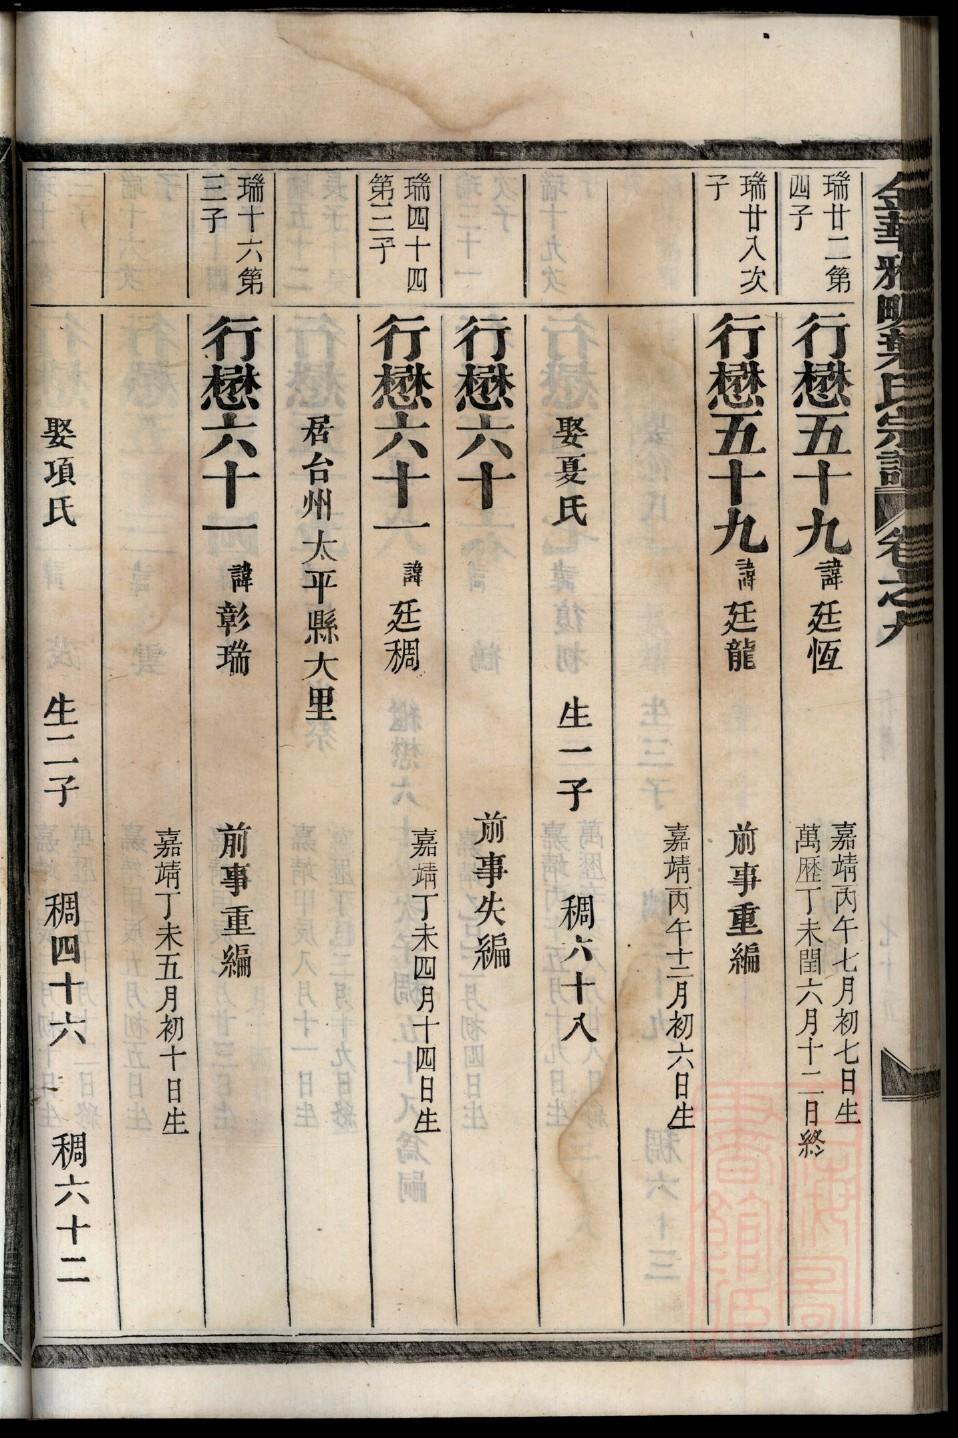 金華雅畈葉氏宗譜 卷之九
瑞廿二第
四子
行懋五十九 諱廷恆
嘉靖丙午七月初七日生
萬歷丁未閏六月十二日終
瑞廿八次
子
行懋五十九 諱廷龍 前事重編
嘉靖丙午十二月初六日生
娶夏氏 生一子 稠六十八
行懋六十 前事失編
瑞四十四
第三子
行懋六十一 諱廷稠
嘉靖丁未四月十四日生
居台州太平縣大里
瑞十六第
三子
行懋六十一 諱彰瑞 前事重編
嘉靖丁未五月初十日生
娶項氏 生二子 稠四十六 稠六十二